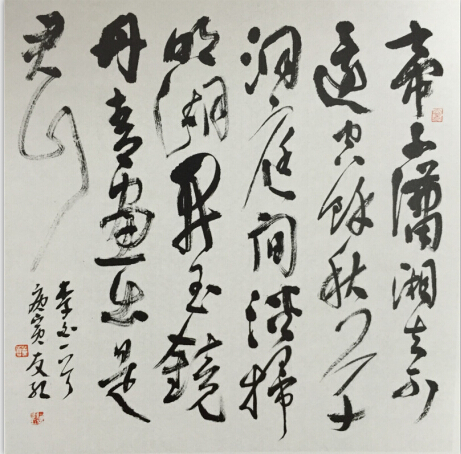 帝子瀟湘去不
還空餘秋草
洞庭間澹掃
明湖開玉鏡
丹青畫出是
君山
李白一首
庚寅友